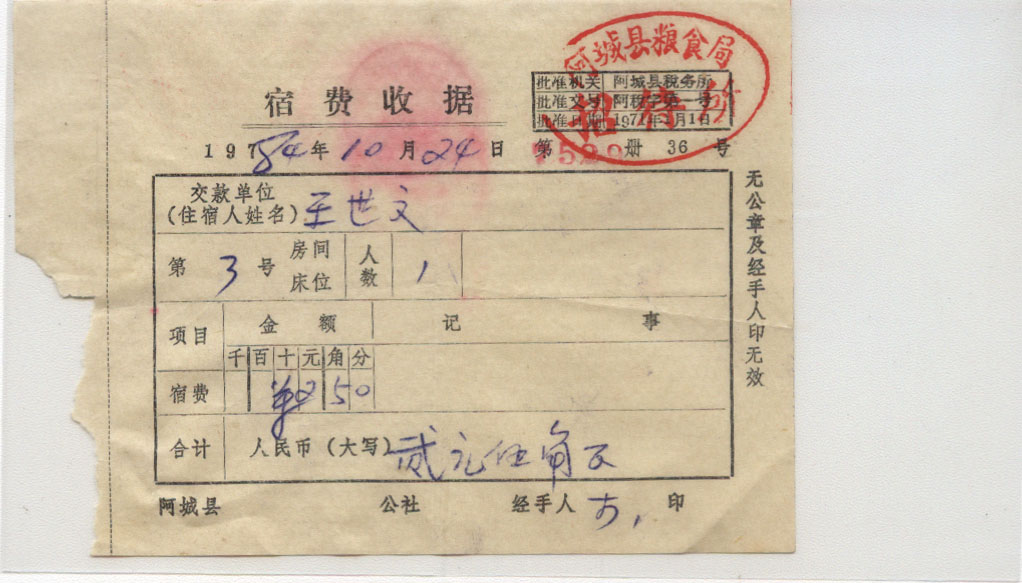 阿城县粮食局
招待所
宿费收据
批准机关 阿城县税务所
批准文号 阿税字第一号
批准日期 1971年 月1日
1984年10月24日 第 册 36 号
交款单位
(住宿人姓名) 王世文
第 3 号 房间 床位 人数 1
项目 金额 记事
千 百 十 元 角 分
宿费 ¥2 5 0
合计 人民币(大写) 贰元伍角
阿城县 公社 经手人 印
无公章及经手人印无效